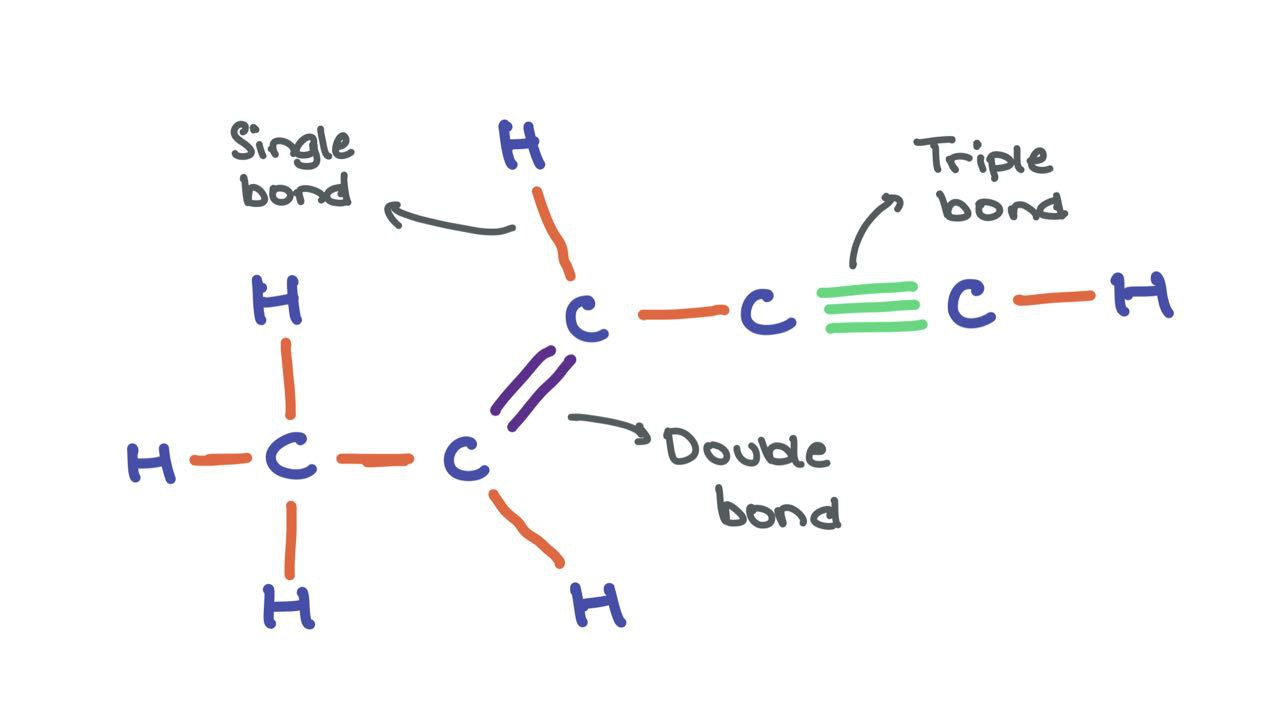 Single
bond
H
Triple
bond
H
C
C
C
H
H
C
C
Double
bond
H
H